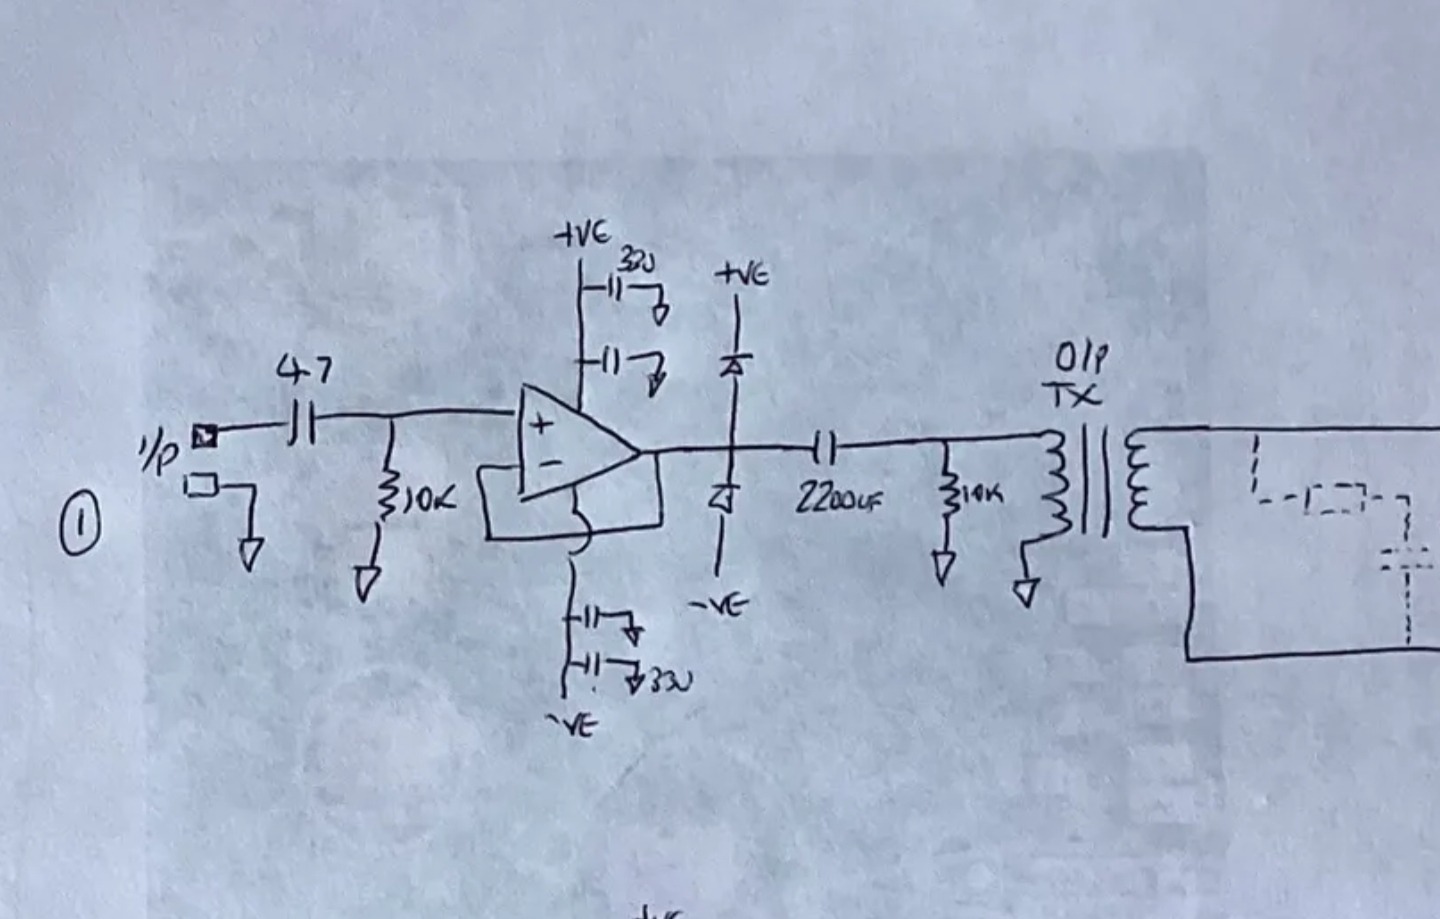 +VE
33U
+VE
47
O/P
TX
+
I/P
-
10K
2200UF
10K
1
-VE
33U
-VE